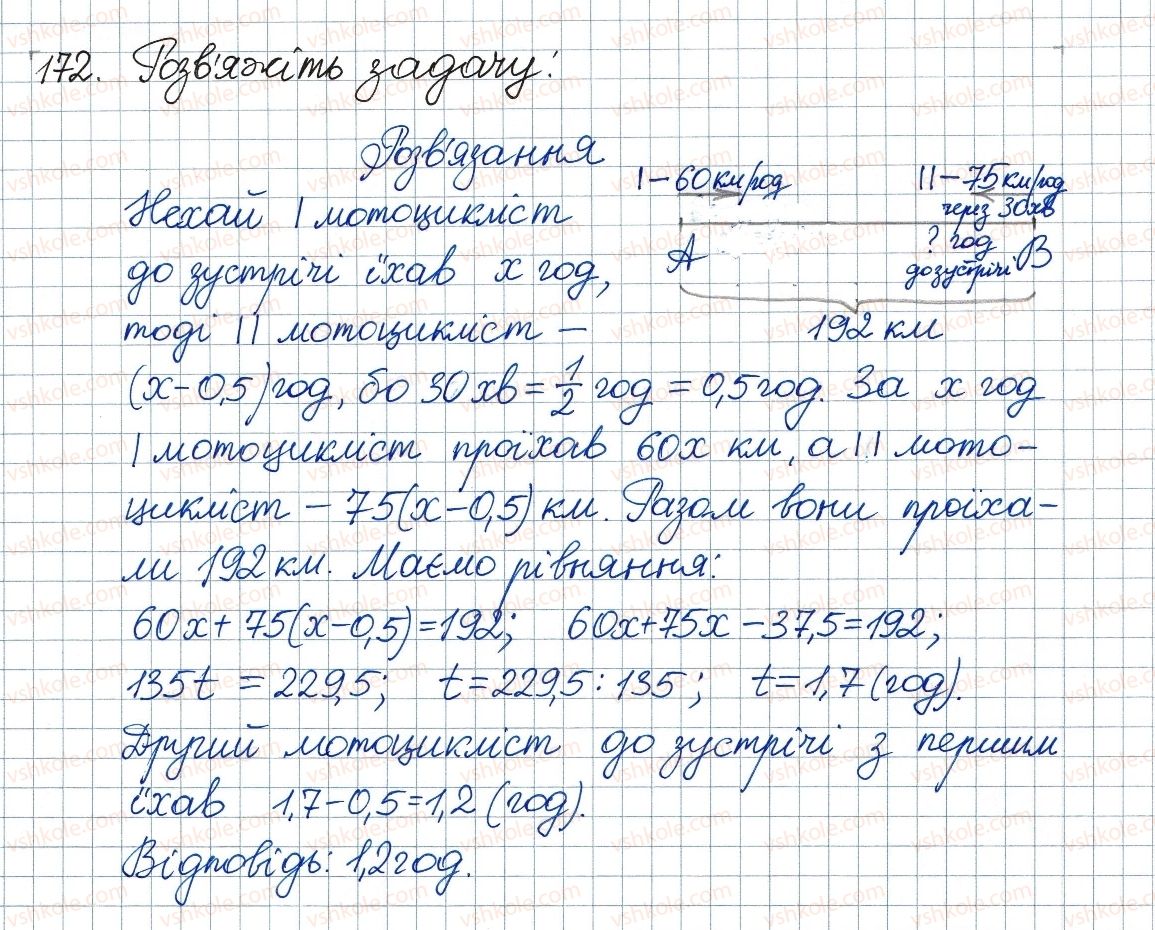 172. Розв'яжіть задачу:
Розв'язання
I – 60 км/год
II – 75 км/год
через 30 хв
? год
до зустрічі
A
B
192 км
Нехай I мотоцикліст
до зустрічі їхав x год,
тоді II мотоцикліст –
(x – 0,5) год, бо 30 хв = 1/2 год = 0,5 год. За x год
I мотоцикліст проїхав 60x км, а II мото-
цикліст – 75(x – 0,5) км. Разом вони проїха-
ли 192 км. Маємо рівняння:
60x + 75(x – 0,5) = 192; 60x + 75x – 37,5 = 192;
135t = 229,5; t = 229,5 : 135; t = 1,7 (год).
Другий мотоцикліст до зустрічі з першим
їхав 1,7 – 0,5 = 1,2 (год).
Відповідь: 1,2 год.
vshkole.com